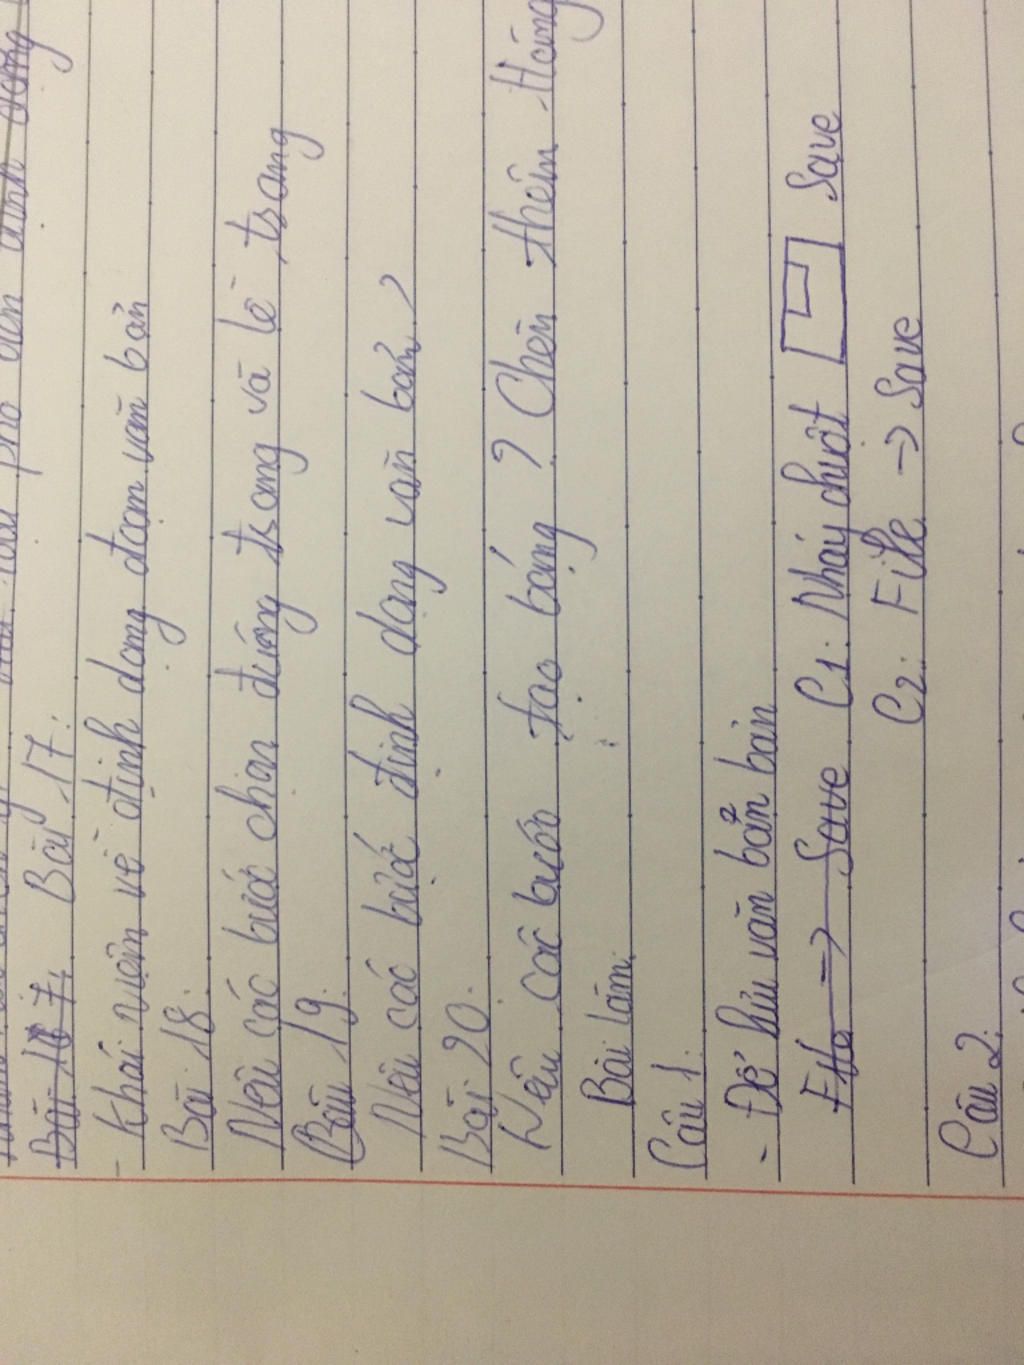 Bài 17:
- Khái niệm về định dạng đoạn văn bản
Bài 18:
Nêu các bước chọn đướng trang và lề trang
Bài 19:
Nêu các bước định dạng văn bản?
Bài 20:
Nêu các bước tạo bảng? Chèn thêm Hàng
Bài làm:
Câu 1:
- Để lưu văn bản bản
File => Save C1: Nháy chuột Save
C2: File -> Save
Câu 2: